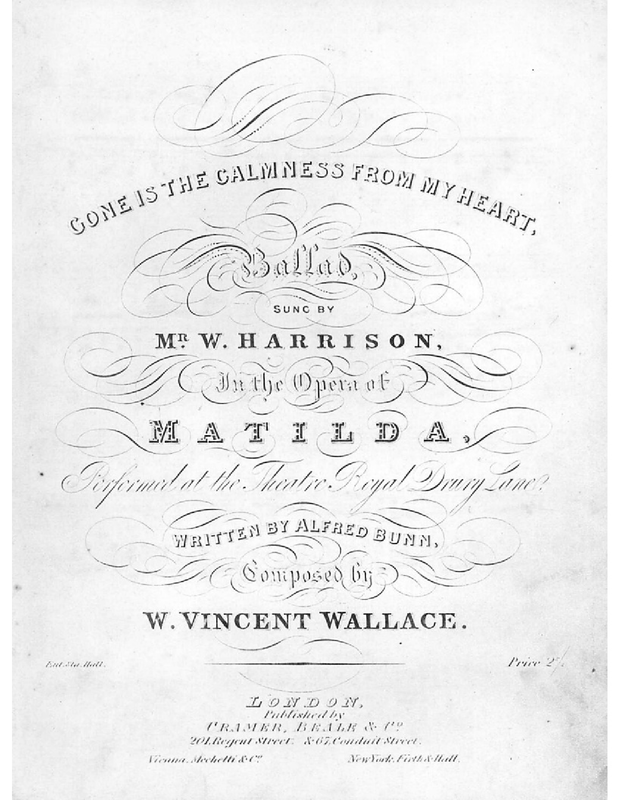 GONE IS THE CALMNESS FROM MY HEART,
Ballad,
SUNG BY
MR. W. HARRISON,
In the Opera of
MATILDA,
Performed at the Theatre Royal Drury Lane.
WRITTEN BY ALFRED BUNN,
Composed by
W. VINCENT WALLACE.
Ent. Sta. Hall. Price 2/
LONDON,
Published by
CRAMER, BEALE & Co.
201, Regent Street. & 67, Conduit Street.
Vienna, Mechetti & Co. New York, Firth & Hall.